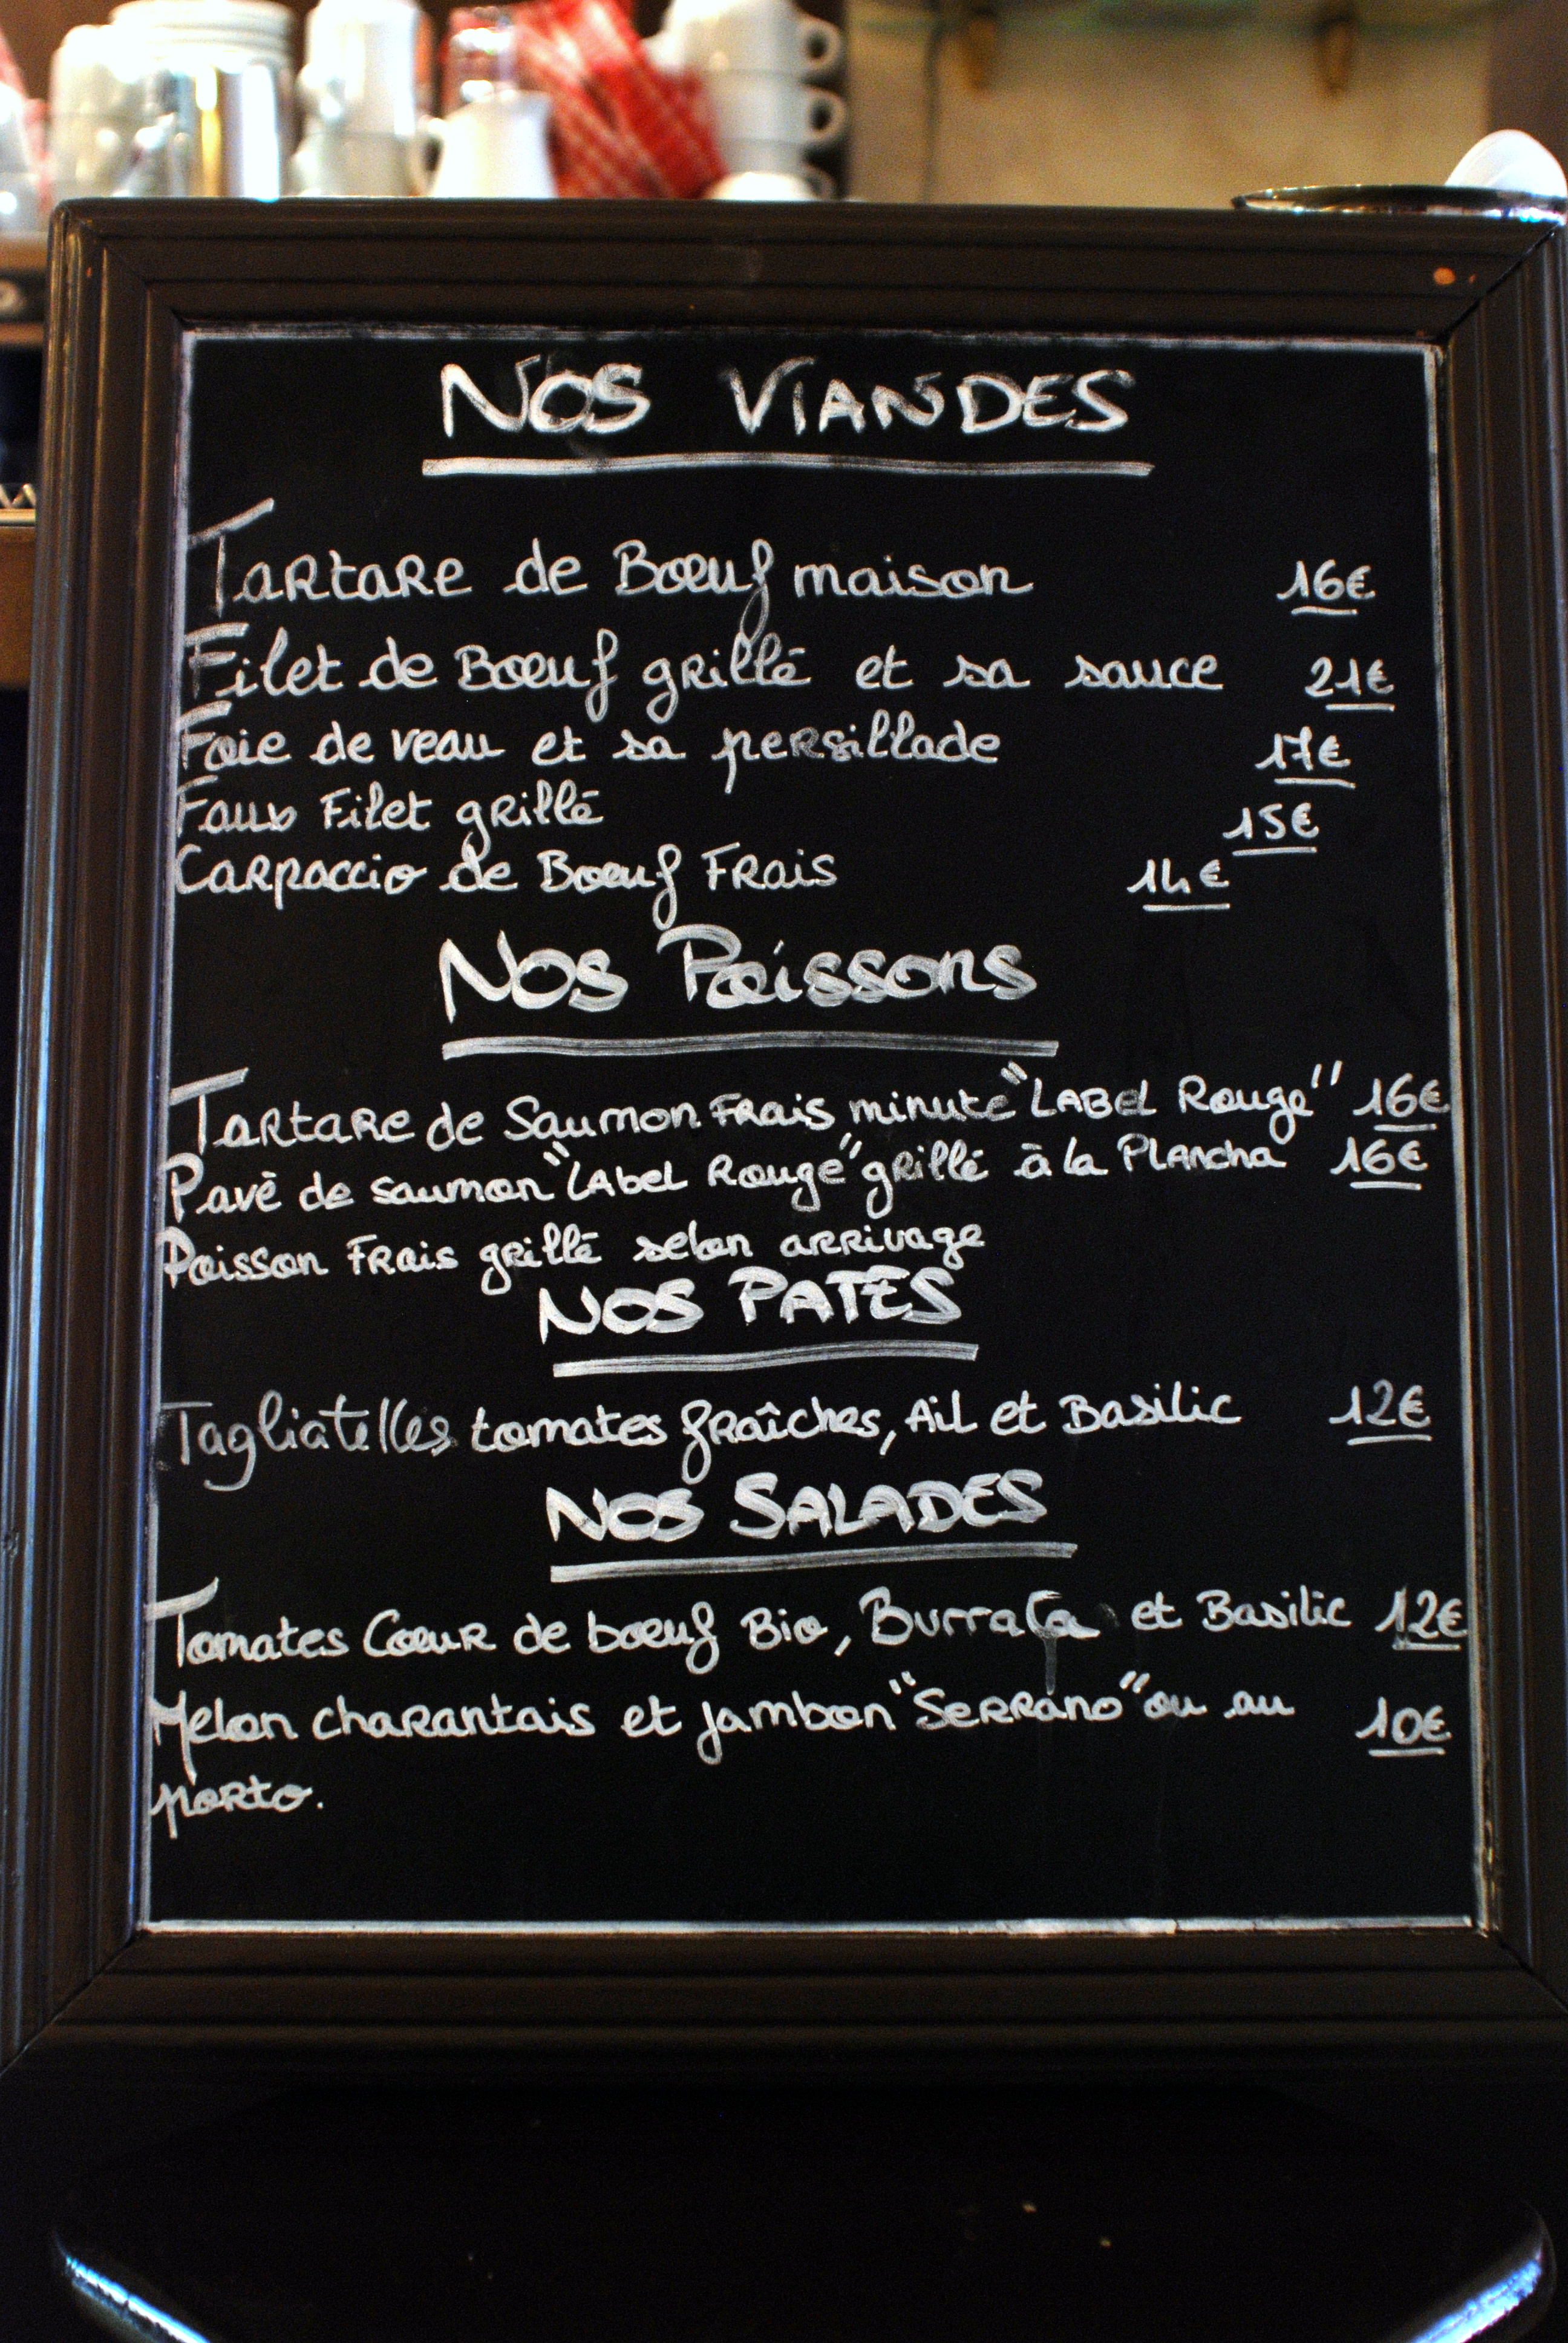 NOS VIANDES
Tartare de Bœuf maison 16€
Filet de Bœuf grillé et sa sauce 21€
Foie de veau et sa persillade 17€
Faux Filet grillé 15€
Carpaccio de Bœuf Frais 14€
Nos Poissons
Tartare de Saumon Frais minute "LABel Rouge" 16€
Pavé de saumon "LAbel Rouge" grillé à la Plancha 16€
Poisson Frais grillé selon arrivage
NOS PATES
Tagliatelles tomates fraîches, Ail et Basilic 12€
NOS SALADES
Tomates Cœur de bœuf Bio, Burrata et Basilic 12€
Melon charantais et jambon "Serrano" ou au 10€
porto.